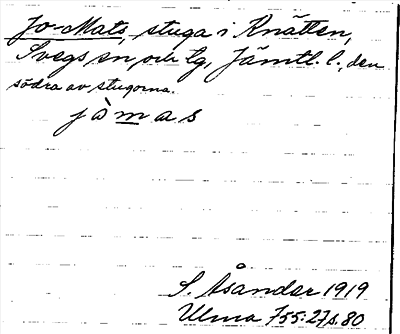 Jo-Mats, stuga i Knätten,
Svegs sn, och tg, Jämtl. l., den
södra av stugorna.
jò m a s
S. Åsander 1919
Ulma 755:27, s. 80